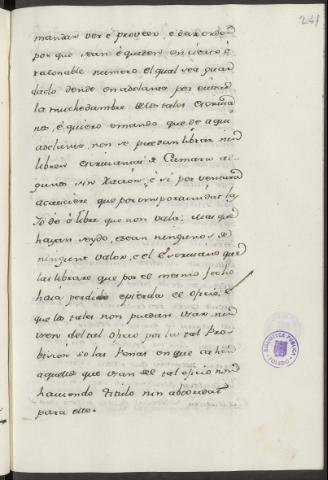 241
mandar ver é proveer é dar orden
por que sean é queden en cierto é
rasonable numero el qual sea guar
dado dende en adelante por evitar
la muchedumbre de los tales Escriva
nos, é quiero é mando que de aqui
adelante non se puedan librar nin
libren Escrivanias de Camara al-
gunas sin Xación, é si por ventura
acaesciere que por importunidat la
Yo dé é libre que non vala; mas que
hayan seydo, é sean ningunas, é de
ningunt valor, é el Escrivano que
las librare que por el mesmo fecho
haia perdido é pierda el oficio, é
que los tales non puedan usar nin
usen del tal oficio por la tal Pro-
vision so las Penas en que cahen
aquellos que usan del tal oficio non
haviendo titulo nin abtoridat
para ello.
BIBLIOTECA PUBLICA
TOLEDO